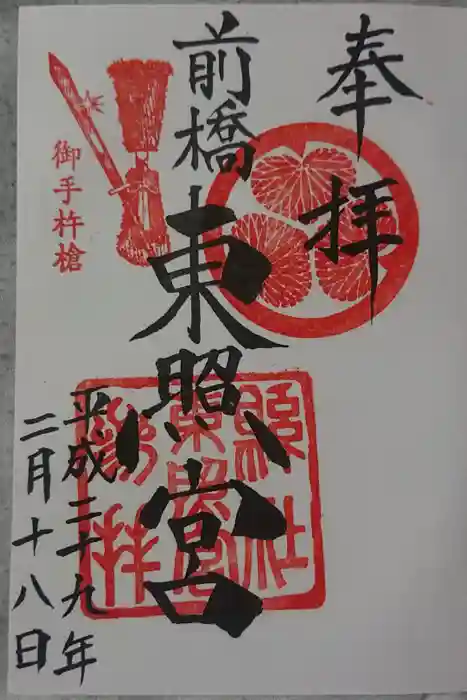 奉拝
前橋東照宮
御手杵槍
平成二十九年
二月十八日
縣社
東照宮